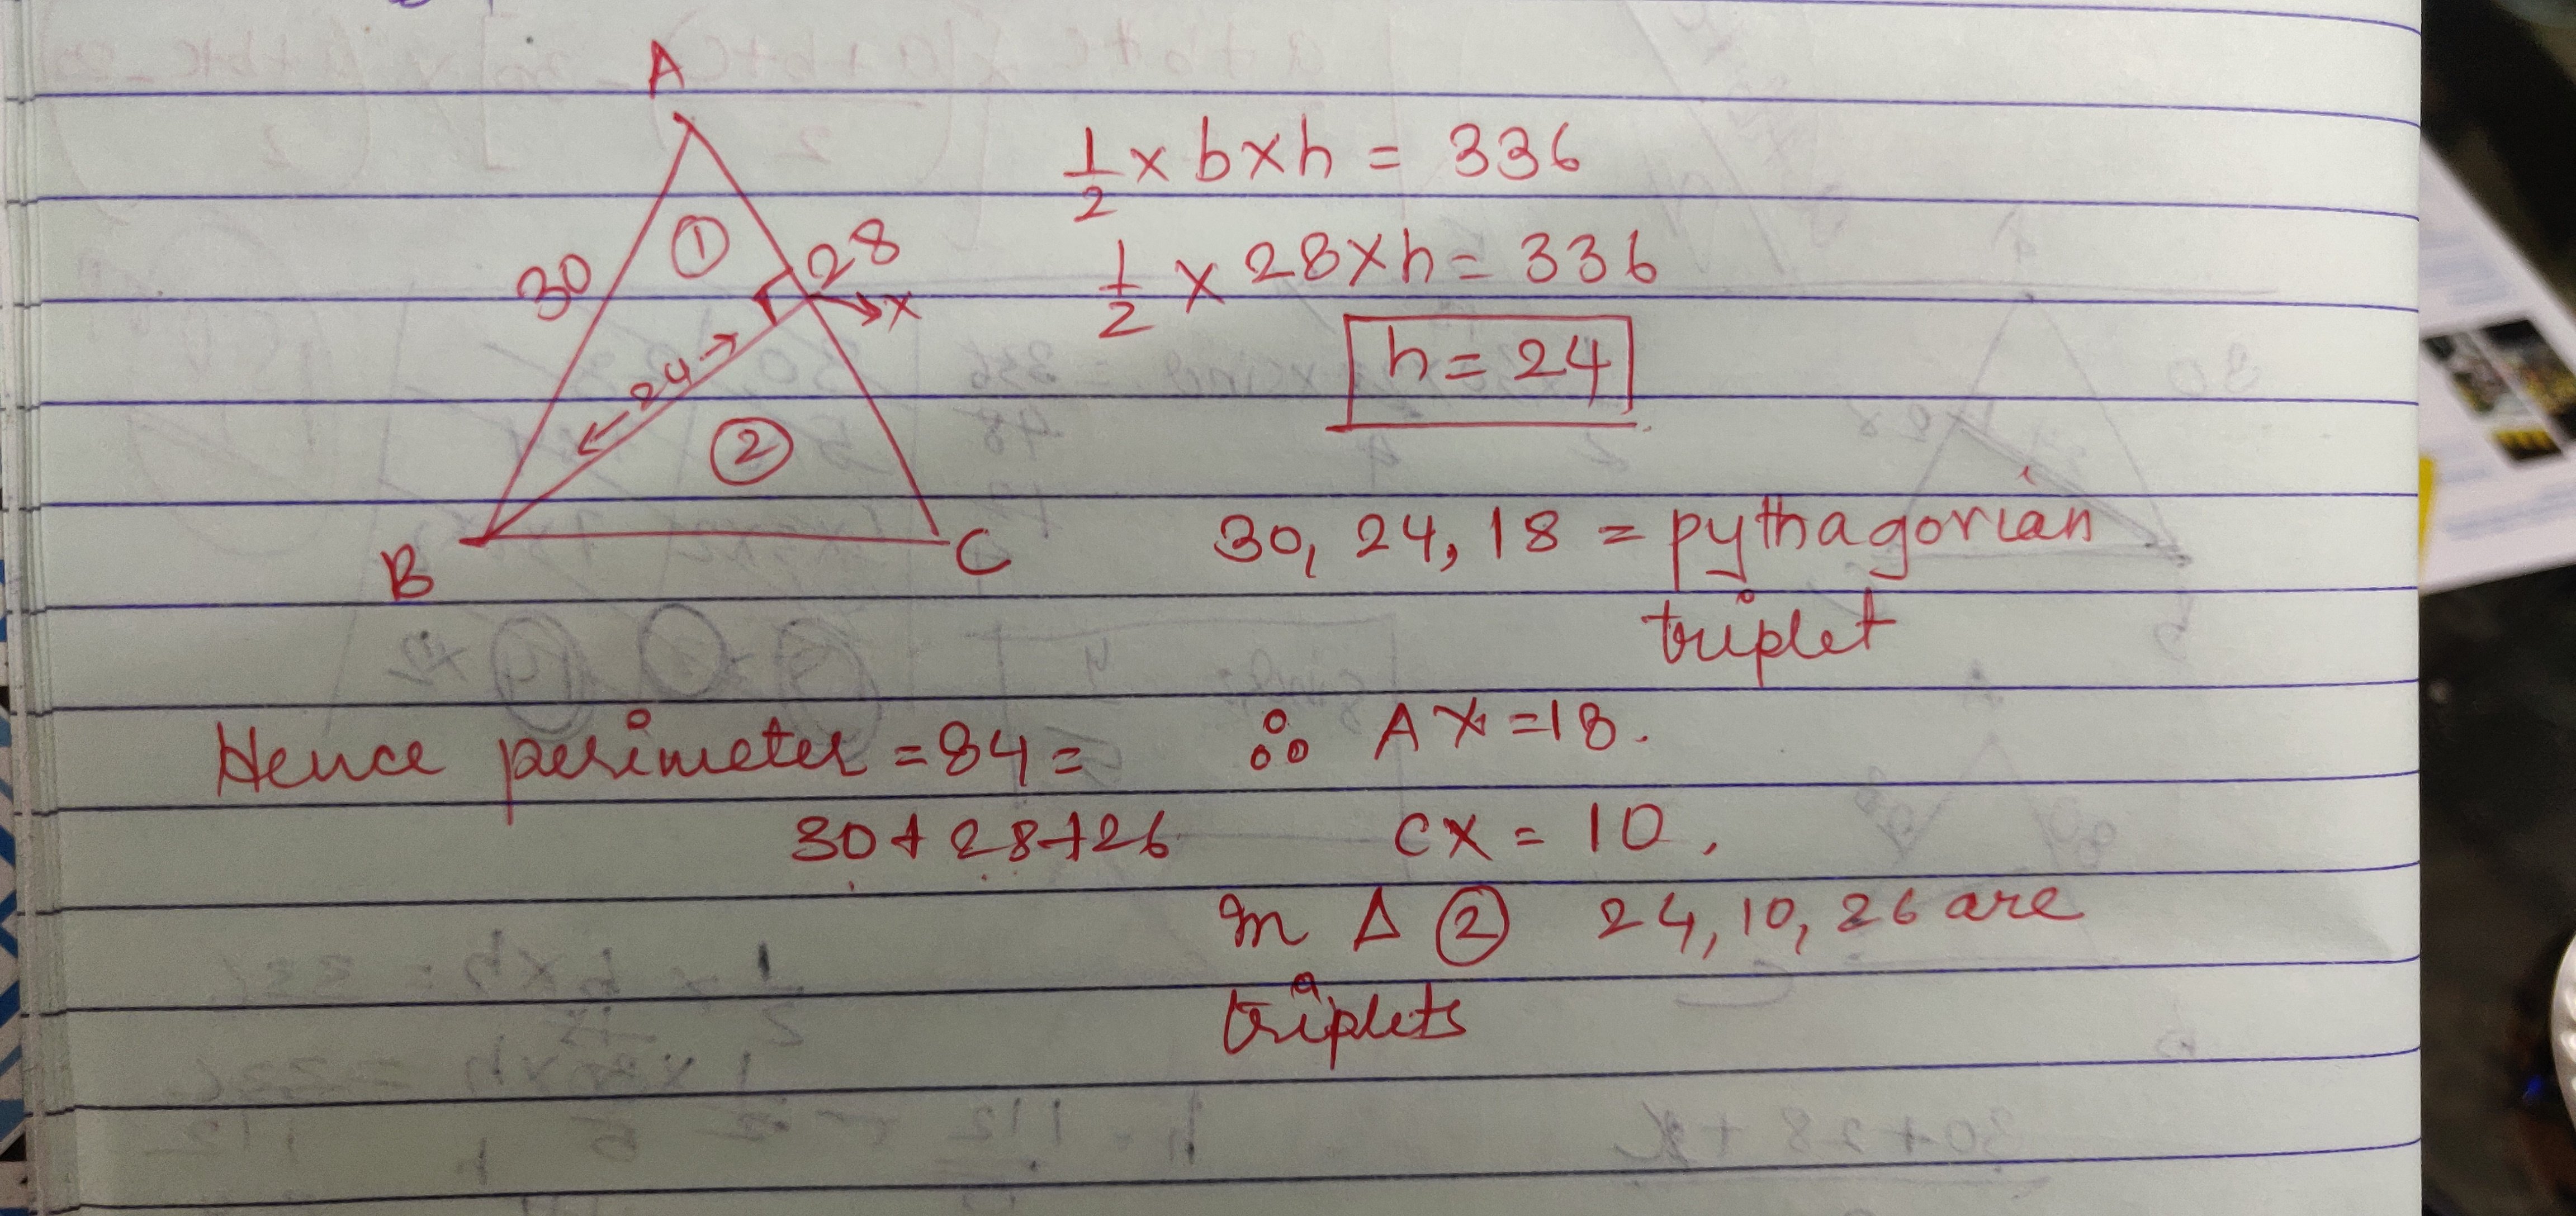 A
30
①
28
x
24
②
B
C
1/2 × b×h = 336
1/2 × 28×h = 336
h = 24
30, 24, 18 = pythagorian
triplet
∴ AX = 18.
CX = 10,
In Δ ② 24, 10, 26 are
triplets
Hence perimeter = 84 =
30 + 28 + 26